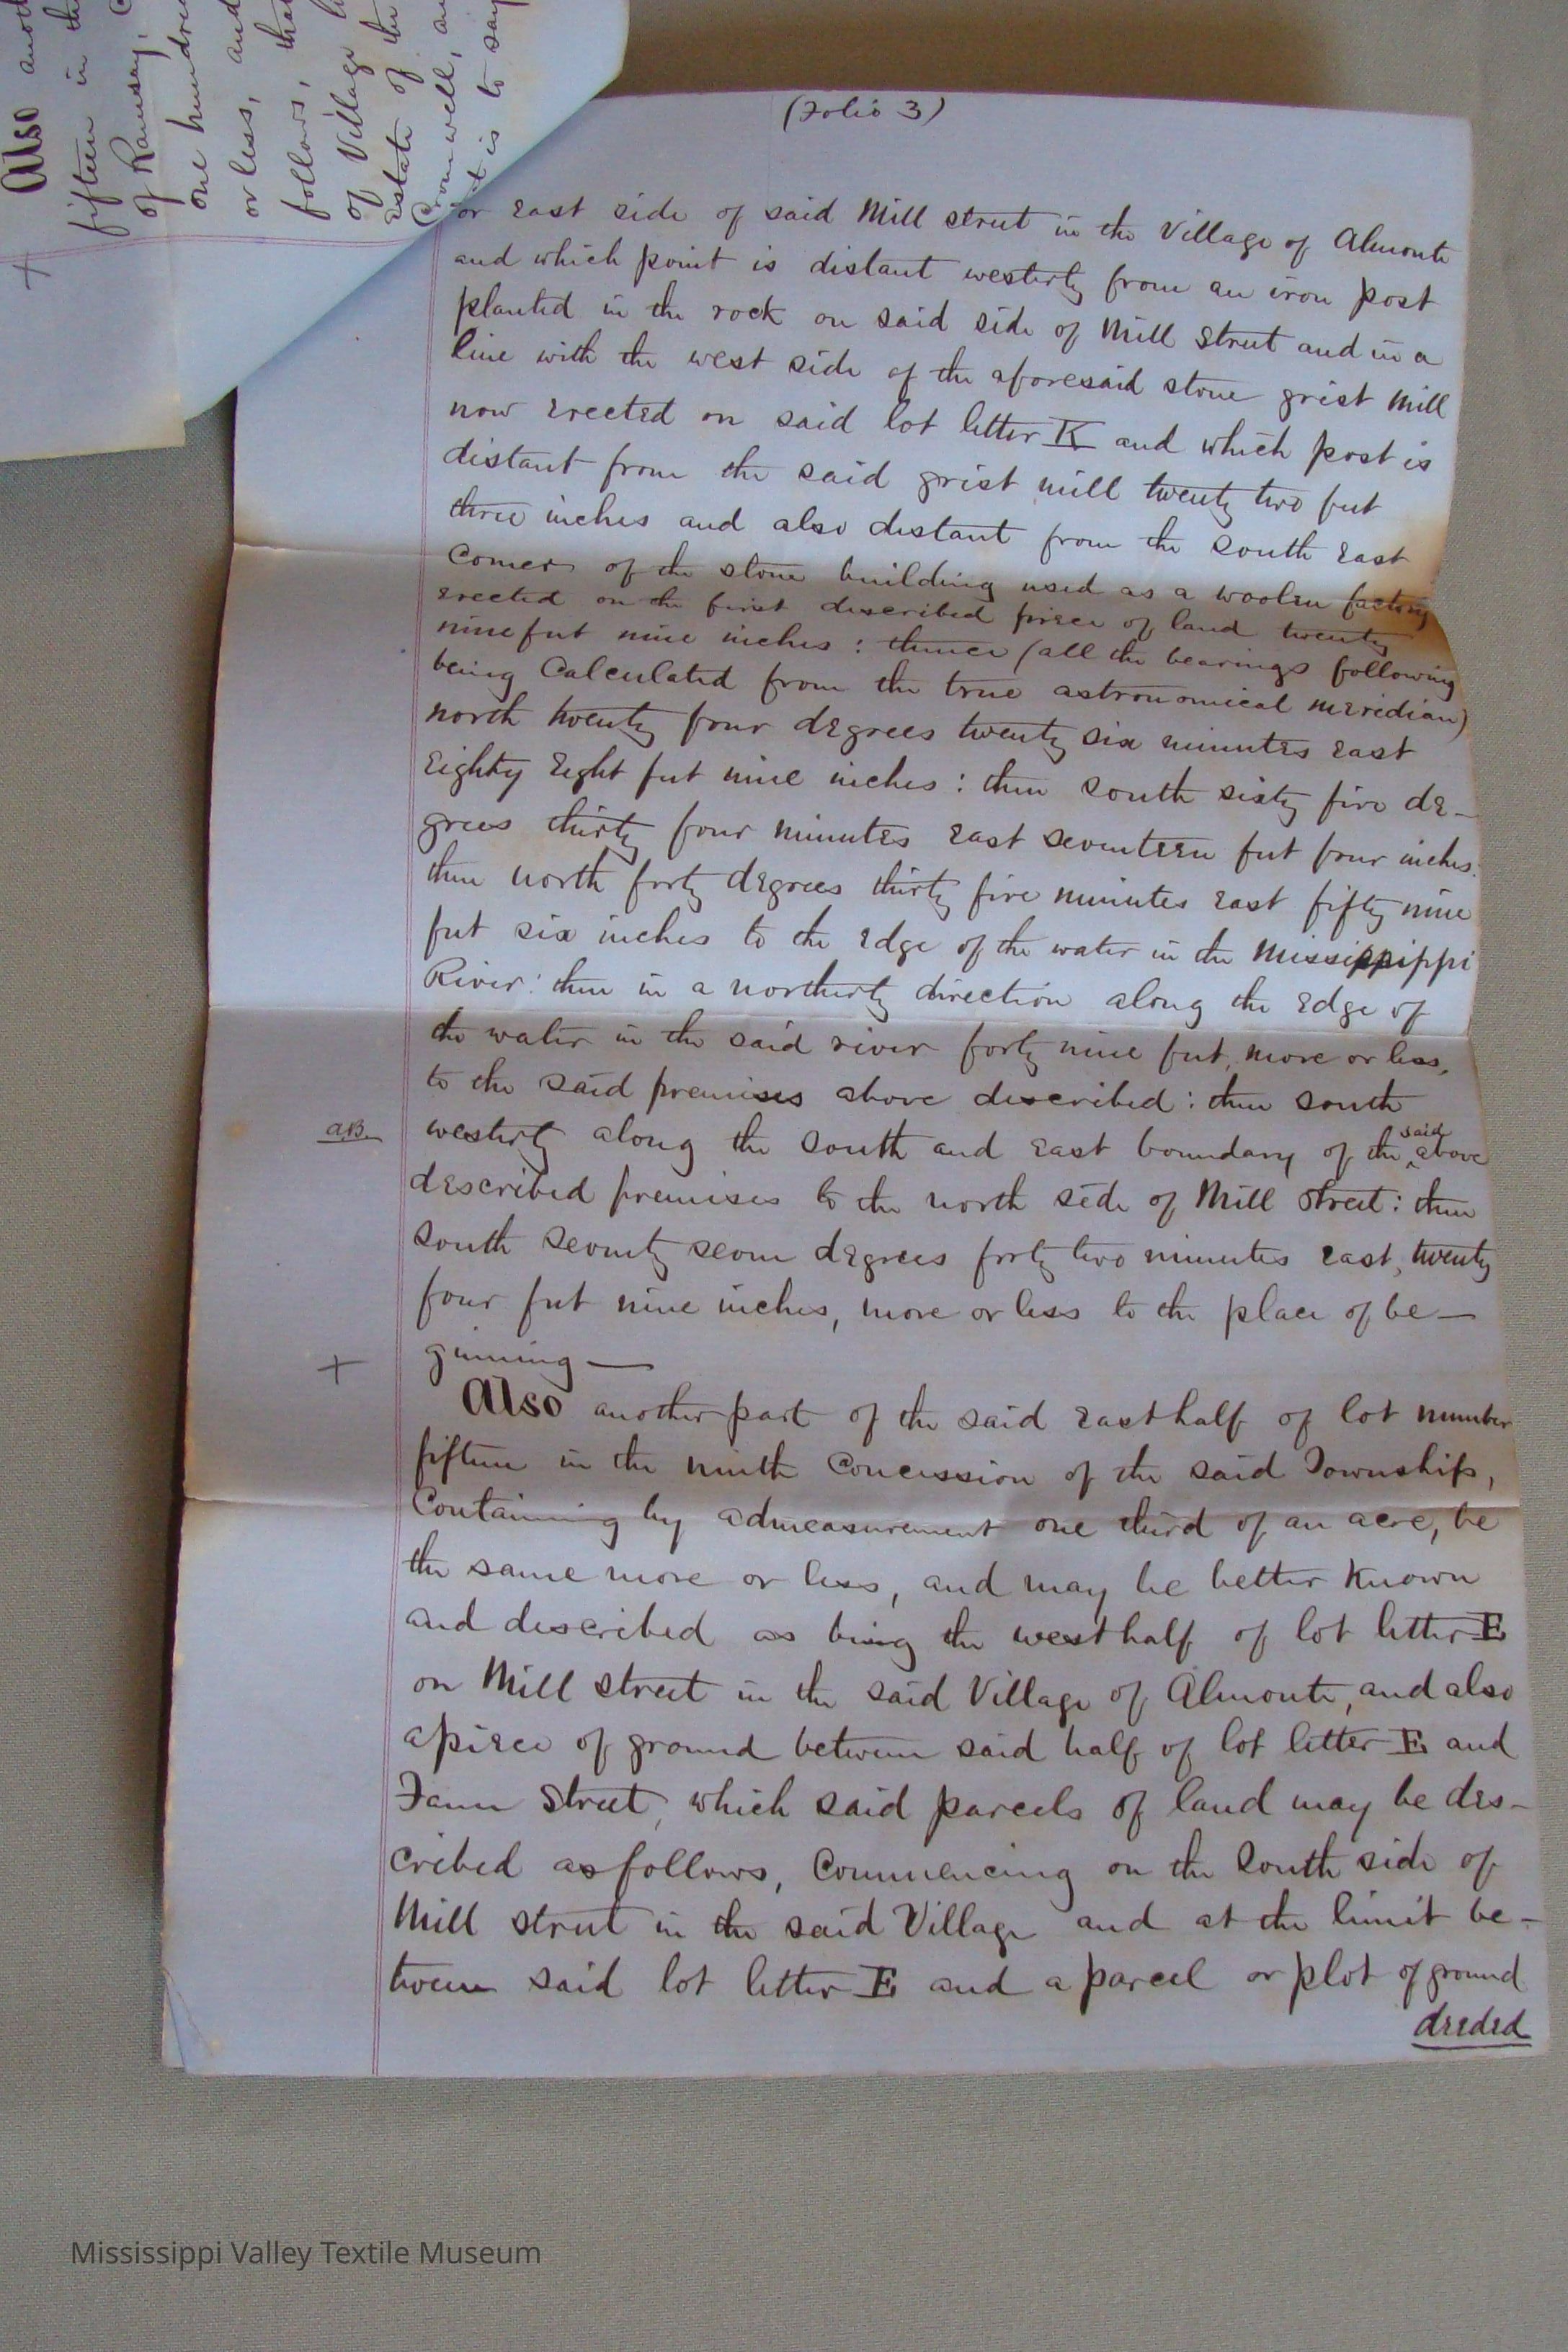 Also anoth
fifteen in the
of Ramsay, C
one hundre
or less, and
follows, that
of Village l
Estate of the
Cromwell, an
t is to say
+
(Folio 3)
or East side of said Mill street in the Village of Almonte
and which point is distant westerly from an iron post
planted in the rock on said side of Mill Street and in a
line with the west side of the aforesaid stone grist Mill
now Erected on said lot letter K and which post is
distant from the said grist mill twenty two feet
three inches and also distant from the South East
Corner of the stone building used as a woolen factory
erected on the first described piece of land twenty
nine feet nine inches : thence (all the bearings following
being Calculated from the true astronomical meridian)
north twenty four degrees twenty six minutes East
Eighty Eight feet nine inches : then South sixty five de-
grees thirty four minutes East Seventeen feet four inches:
then north forty degrees thirty five minutes East fifty nine
feet six inches to the Edge of the water in the Mississippippi
River : then in a northerly direction along the Edge of
the water in the said river forty nine feet, more or less,
to the said premises above described : then South
a.B. westerly along the South and East boundary of the said above
described premises to the north side of Mill Street : then
South Seventy Seven degrees forty two minutes East, twenty
four feet nine inches, more or less to the place of be-
ginning —
+ Also another part of the said East half of lot number
fifteen in the ninth Concession of the said Township,
Containing by admeasurement one third of an acre, be
the same more or less, and may be better Known
and described as being the west half of lot letter E
on Mill Street in the said Village of Almonte, and also
a piece of ground between said half of lot letter E and
Farm Street, which said parcels of land may be des-
cribed as follows, Commencing on the South side of
Mill street in the said Village and at the limit be-
tween said lot letter E and a parcel or plot of ground
deeded
Mississippi Valley Textile Museum